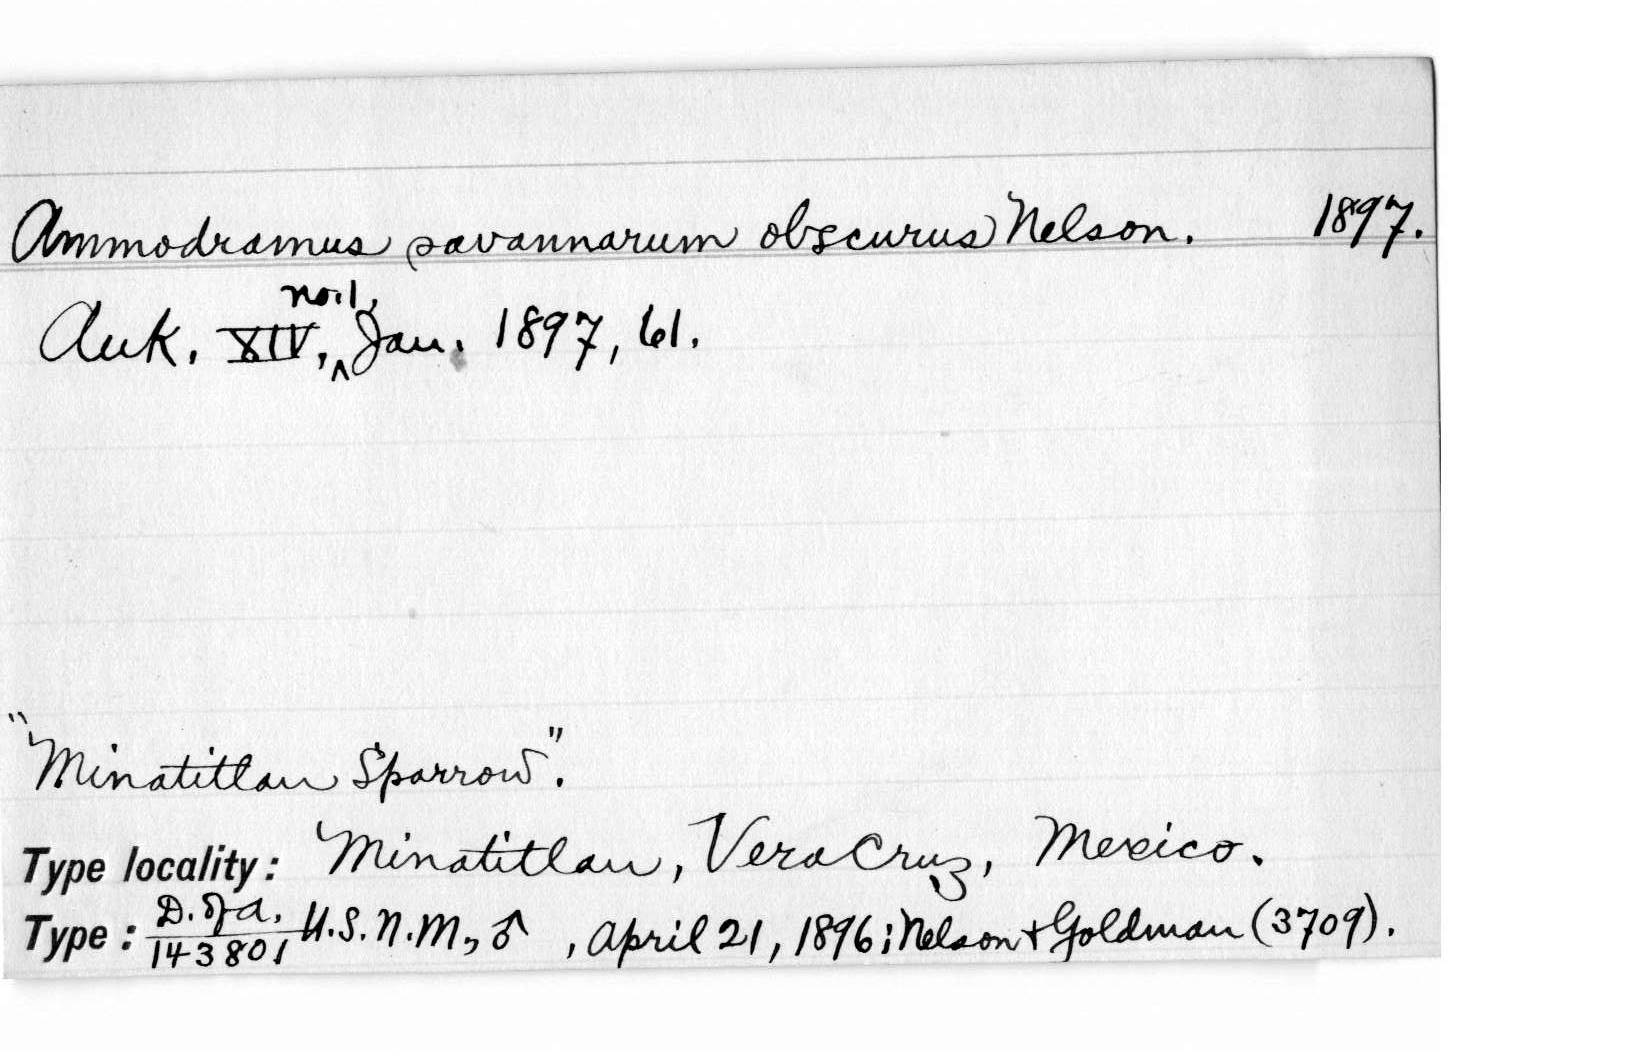 Ammodramus savannarum obscurus Nelson. 1897.
Auk. XIV, no. 1, Jan. 1897, 61.
"Minatitlan Sparrow".
Type locality: Minatitlan, Vera Cruz, Mexico.
Type: D. of A. / 143801 U.S.N.M., ♂, April 21, 1896; Nelson + Goldman (3709).